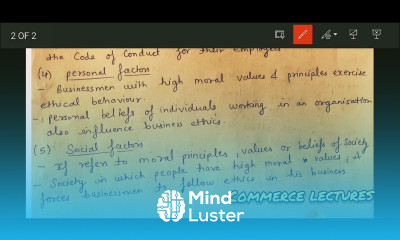 2 OF 2
the Code of Conduct for their employees
(4) personal factors
- Businessmen with high moral values & principles exercise
ethical behaviour.
- personal beliefs of individuals working in an organisation
also influence business ethics.
(5) Social factors
- It refer to moral principles, values or beliefs of society
- Society in which people have high moral values, it
forces businessmen to follow ethics in his business
COMMERCE LECTURES
Mind
Luster